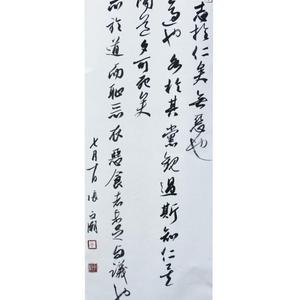 志於仁矣無惡也
過也各於其黨觀過斯知仁矣
聞道夕可死矣
志於道而恥惡衣惡食者未足與議也
七月